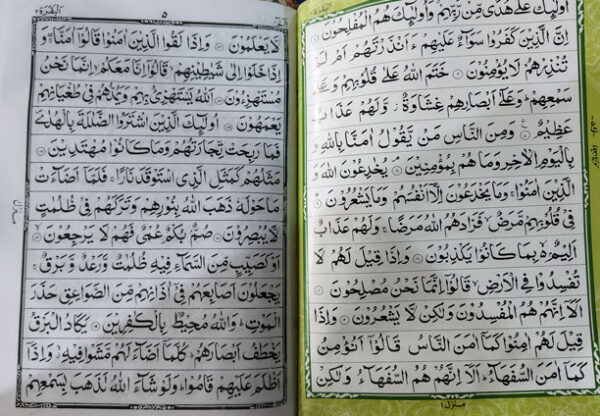 اُولٰٓئِكَ عَلٰى هُدًى مِّنْ رَّبِّهِمْ وَاُولٰٓئِكَ هُمُ الْمُفْلِحُوْنَ
اِنَّ الَّذِيْنَ كَفَرُوْا سَوَآءٌ عَلَيْهِمْ ءَاَنْذَرْتَهُمْ اَمْ لَمْ
تُنْذِرْهُمْ لَا يُؤْمِنُوْنَ خَتَمَ اللّٰهُ عَلٰى قُلُوْبِهِمْ وَعَلٰى
سَمْعِهِمْ وَعَلٰٓى اَبْصَارِهِمْ غِشَاوَةٌ وَّلَهُمْ عَذَابٌ
عَظِيْمٌ وَمِنَ النَّاسِ مَنْ يَّقُوْلُ اٰمَنَّا بِاللّٰهِ وَ
بِالْيَوْمِ الْاٰخِرِ وَمَا هُمْ بِمُؤْمِنِيْنَ يُخٰدِعُوْنَ اللّٰهَ وَ
الَّذِيْنَ اٰمَنُوْا وَمَا يَخْدَعُوْنَ اِلَّآ اَنْفُسَهُمْ وَمَا يَشْعُرُوْنَ
فِيْ قُلُوْبِهِمْ مَّرَضٌ فَزَادَهُمُ اللّٰهُ مَرَضًا وَلَهُمْ عَذَابٌ
اَلِيْمٌۢ بِمَا كَانُوْا يَكْذِبُوْنَ وَاِذَا قِيْلَ لَهُمْ لَا
تُفْسِدُوْا فِي الْاَرْضِ قَالُوْٓا اِنَّمَا نَحْنُ مُصْلِحُوْنَ
اَلَآ اِنَّهُمْ هُمُ الْمُفْسِدُوْنَ وَلٰكِنْ لَّا يَشْعُرُوْنَ وَاِذَا
قِيْلَ لَهُمْ اٰمِنُوْا كَمَآ اٰمَنَ النَّاسُ قَالُوْٓا اَنُؤْمِنُ
كَمَآ اٰمَنَ السُّفَهَآءُ اَلَآ اِنَّهُمْ هُمُ السُّفَهَآءُ وَلٰكِنْ
منزل ١
البقرة ٢
٥
لَّا يَعْلَمُوْنَ وَاِذَا لَقُوا الَّذِيْنَ اٰمَنُوْا قَالُوْٓا اٰمَنَّا وَ
اِذَا خَلَوْا اِلٰى شَيٰطِيْنِهِمْ قَالُوْٓا اِنَّا مَعَكُمْ اِنَّمَا نَحْنُ
مُسْتَهْزِءُوْنَ اَللّٰهُ يَسْتَهْزِئُ بِهِمْ وَيَمُدُّهُمْ فِيْ طُغْيَانِهِمْ
يَعْمَهُوْنَ اُولٰٓئِكَ الَّذِيْنَ اشْتَرَوُا الضَّلٰلَةَ بِالْهُدٰى
فَمَا رَبِحَتْ تِّجَارَتُهُمْ وَمَا كَانُوْا مُهْتَدِيْنَ
مَثَلُهُمْ كَمَثَلِ الَّذِي اسْتَوْقَدَ نَارًا فَلَمَّآ اَضَآءَتْ
مَا حَوْلَهٗ ذَهَبَ اللّٰهُ بِنُوْرِهِمْ وَتَرَكَهُمْ فِيْ ظُلُمٰتٍ
لَّا يُبْصِرُوْنَ صُمٌّۢ بُكْمٌ عُمْيٌ فَهُمْ لَا يَرْجِعُوْنَ
اَوْ كَصَيِّبٍ مِّنَ السَّمَآءِ فِيْهِ ظُلُمٰتٌ وَّرَعْدٌ وَّبَرْقٌ
يَجْعَلُوْنَ اَصَابِعَهُمْ فِيْٓ اٰذَانِهِمْ مِّنَ الصَّوَاعِقِ حَذَرَ
الْمَوْتِ وَاللّٰهُ مُحِيْطٌۢ بِالْكٰفِرِيْنَ يَكَادُ الْبَرْقُ
يَخْطَفُ اَبْصَارَهُمْ كُلَّمَآ اَضَآءَ لَهُمْ مَّشَوْا فِيْهِ وَاِذَآ
اَظْلَمَ عَلَيْهِمْ قَامُوْا وَلَوْ شَآءَ اللّٰهُ لَذَهَبَ بِسَمْعِهِمْ